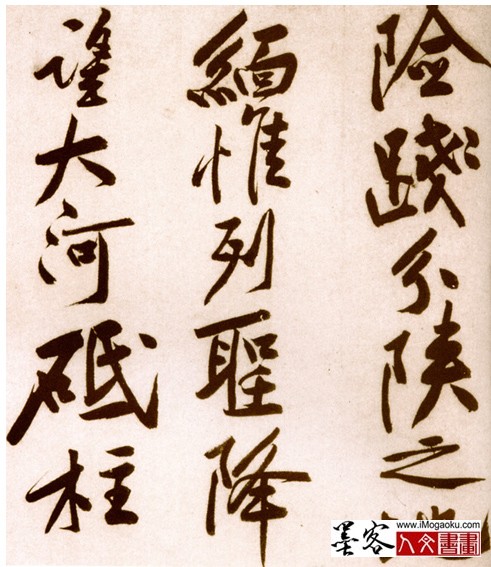 險踐分陝之
緬惟列聖降
望大河砥柱
墨客
www.iMogaoku.com
人文書畫